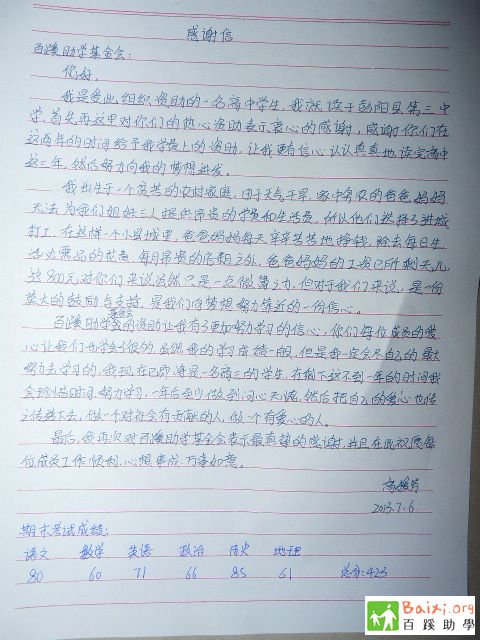 感谢信
百蹊助学基金会：
您好，
我是受此组织资助的一名高中学生，我就读于彭阳县第三中
学，首先再这里对你们的热心资助表示衷心的感谢，感谢你们在
这两年的时间给予我学费上的资助，让我更自信心认认真真地读完高中
这三年，然后努力向我的梦想进发。
我出生于一个贫苦的农村家庭，由于天气干旱，家中务农的爸爸妈妈
无法为我们姐妹三人提供昂贵的学费和生活费，所以他们选择了进城
打工，在这样一个小县城里，爸爸妈妈每天辛辛苦苦地挣钱，除去每日生
活必需品的花费，每月昂贵的房租之外，爸爸妈妈的工资已所剩无几，
这800元对你们来说虽然只是一点微薄之力，但对于我们来说，是一份
莫大的鼓励与支持，是我们向梦想努力靠近的一份信心。
百蹊助学基金会的资助让我有了更加努力学习的信心，你们每位成员的爱
心让我们也学会了很的，虽然我的学习成绩一般，但是我一定会尽自己的最大
努力去学习的，我现在已即将是一名高三的学生，在剩下这不到一年的时间我
会珍惜时间，努力学习，一年后至少做到问心无愧，然后把自己的爱心也传
递下去，做一个对社会有贡献的人，做一个有爱心的人。
最后，我再次对百蹊助学基金会表示最真挚的感谢，并且在此祝愿每
位成员工作顺利，心想事成，万事如意。
2013.7.6
期末考试成绩：
语文 数学 英语 政治 历史 地理
80 60 71 66 85 61 总分：423
Baixi.org
百蹊助學